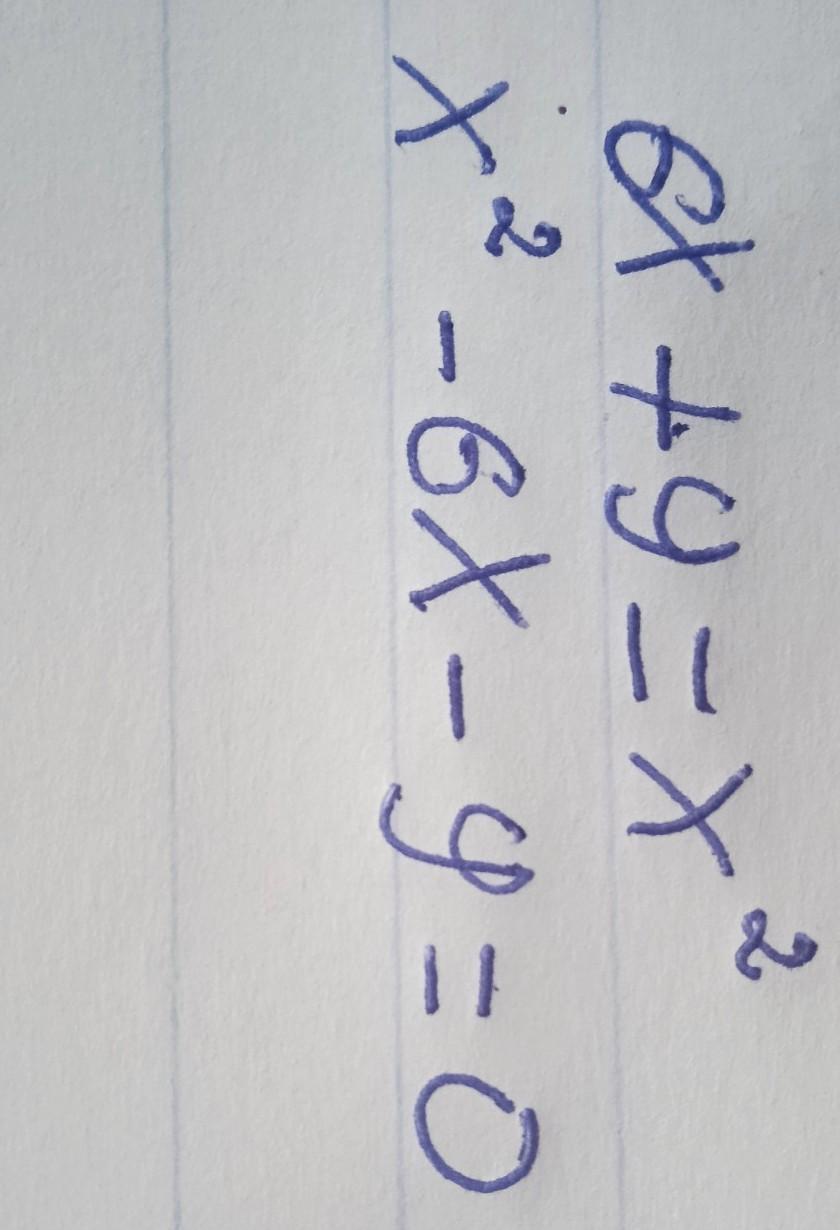 6x + y = x²
x² - 6x - y = 0